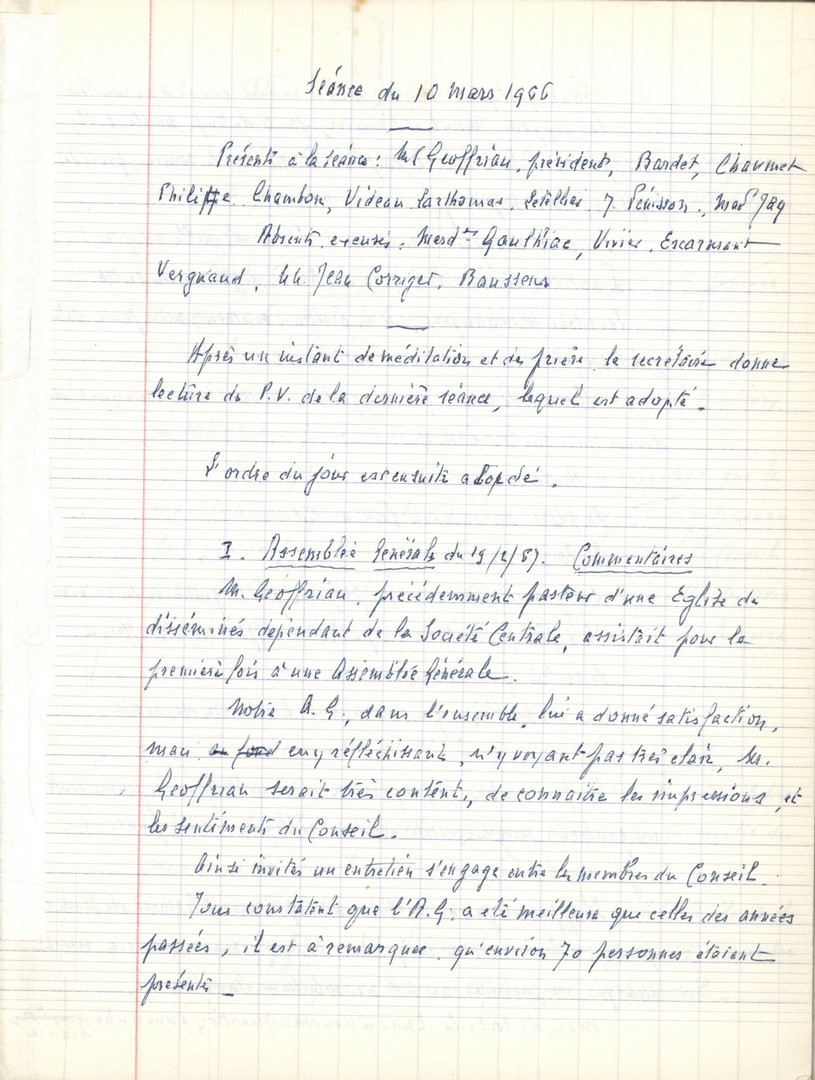 Séance du 10 mars 1966
Présents à la séance : MM Geoffrian, président, Bardet, Charmet
Philippe Chambon, Videau Parthomas, Letellier 7. Pénisson,
Absents excusés : Mesd^es Gaulhiac, Vivier, Escarmant
Vergnaud, MM. Jean Corriger, Baussens
Après un instant de méditation et de prière le secrétaire donne
lecture du P.V. de la dernière séance, lequel est adopté.
L'ordre du jour est ensuite adopdé.
I. Assemblée Générale du 19/2/67. Commentaires
M. Geoffrian, précédemment pasteur d'une Eglise de
disséminés dépendant de la Société Centrale, assistait pour la
première fois à une Assemblée Générale.
Notre A.G., dans l'ensemble, lui a donné satisfaction,
mais au fond en y réfléchissant, n'y voyant pas très clair, M.
Geoffrian serait très content, de connaître les impressions, et
les sentiments du Conseil.
Ainsi invités un entretien s'engage entre les membres du Conseil.
Tous constatent que l'A.G. a été meilleure que celles des années
passées, il est à remarquer qu'environ 70 personnes étaient
présents.